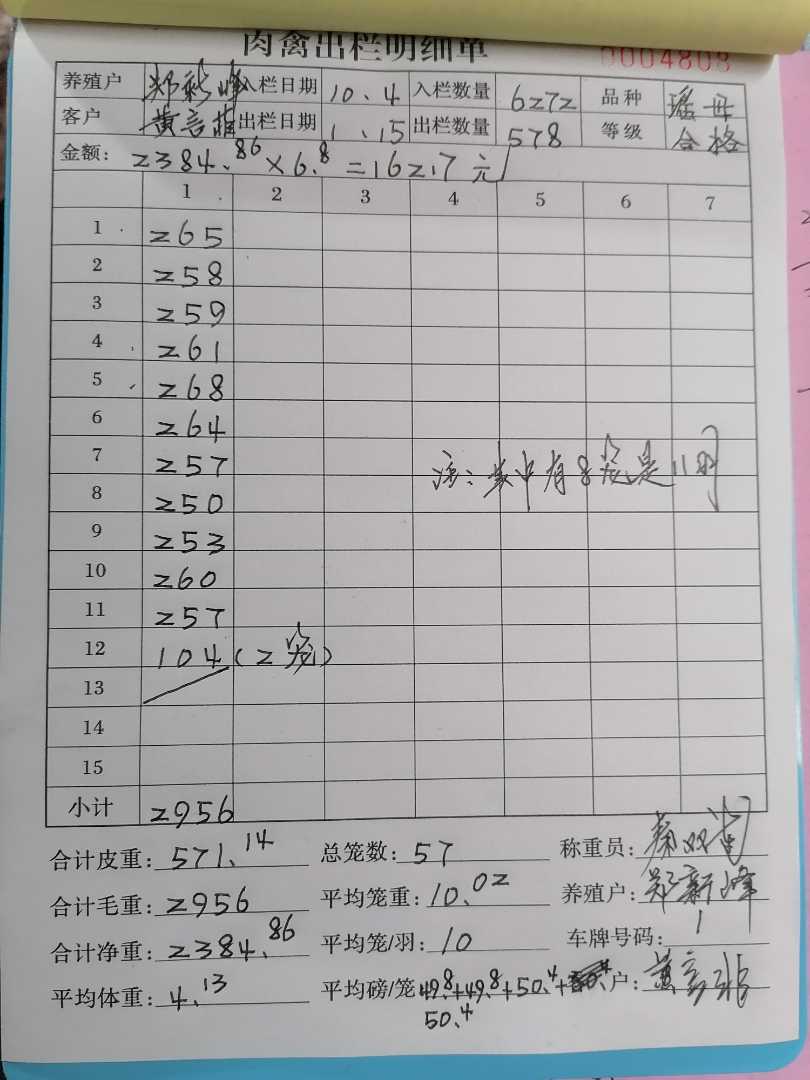 肉禽出栏明细单 0004808
养殖户 郑新峰 入栏日期 10.4 入栏数量 6272 品种 瑶丹
客户 黄言 出栏日期 1.15 出栏数量 578 等级 合格
金额: 2384.86×6.8=16217元
1 2 3 4 5 6 7
1 265
2 258
3 259
4 261
5 268
6 264
7 257 注:其中有8笼是11的
8 250
9 253
10 260
11 257
12 104(2笼)
13
14
15
小计 2956
合计皮重: 571.14 总笼数: 57 称重员:
合计毛重: 2956 平均笼重: 10.02 养殖户: 郑新峰
合计净重: 2384.86 平均笼/羽: 10 车牌号码: 1
平均体重: 4.13 平均磅/笼 49.8+49.8+50.4+ 户: 黄言
50.4